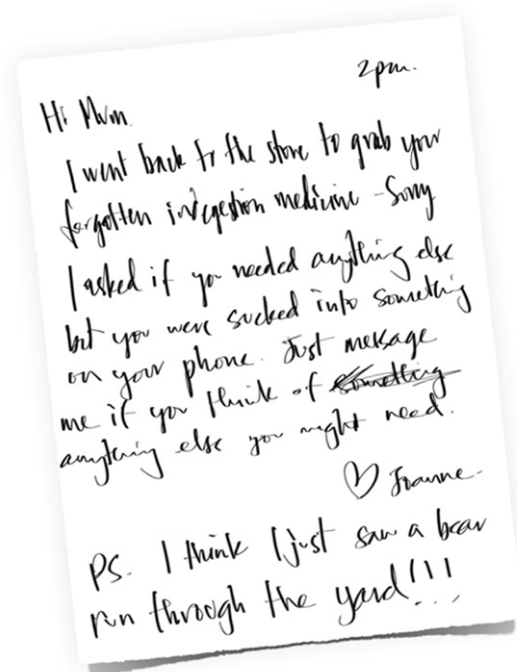 2pm.
Hi Mum.
I went back to the store to grab your
forgotten indegestion medicine - Sorry
I asked if you needed anything else
but you were sucked into something
on your phone. Just message
me if you think of something
anything else you might need.
♡ Joanne-
PS. I think I just saw a bear
run through the yard!!!